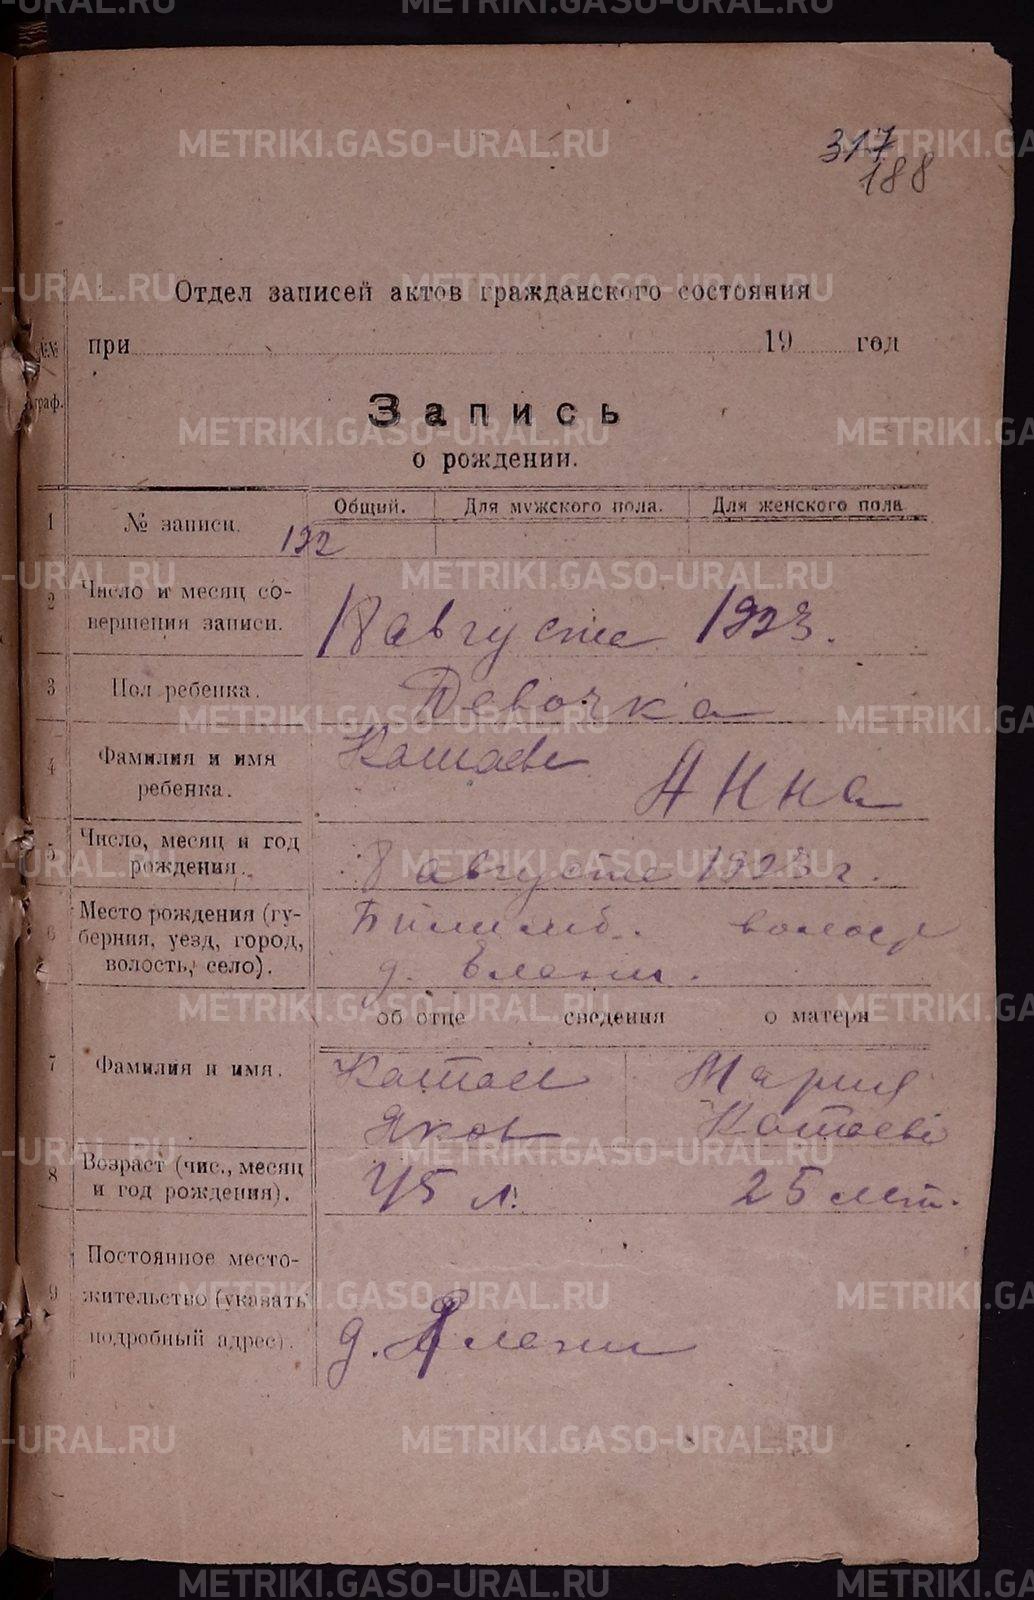 317
188
Отдел записей актов гражданского состояния
№№ при 19 год
граф.
Запись
о рождении.
1 № записи. Общий. Для мужского пола. Для женского пола
122
2 Число и месяц со-
вершения записи.
18 августа 1923.
3 Пол ребенка. Девочка
4 Фамилия и имя
ребенка.
Катаева Анна
5 Число, месяц и год
рождения.
8 августа 1923 г.
6 Место рождения (гу-
берния, уезд, город,
волость, село).
Билимб. волость
д. Елани.
об отце сведения о матери
7 Фамилия и имя.
Катаев Мария
Яков Катаева
8 Возраст (чис., месяц
и год рождения).
45 л. 25 лет.
9 Постоянное место-
жительство (указать
подробный адрес).
д. Елани
METRIKI.GASO-URAL.RU